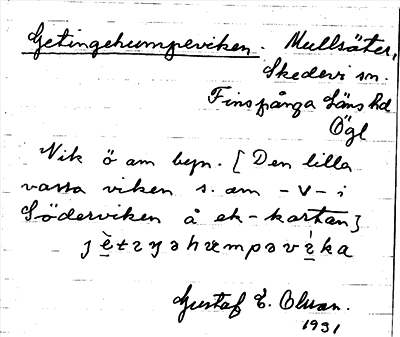 Getingehumpeviken. Mullsäter,
Skedevi sn.
Finspånga läns hd
Ögl
Vik ö om byn. [Den lilla
vassa viken s. om -v- i
Söderviken å ek-kartan]
Gustaf E. Olsson.
1931